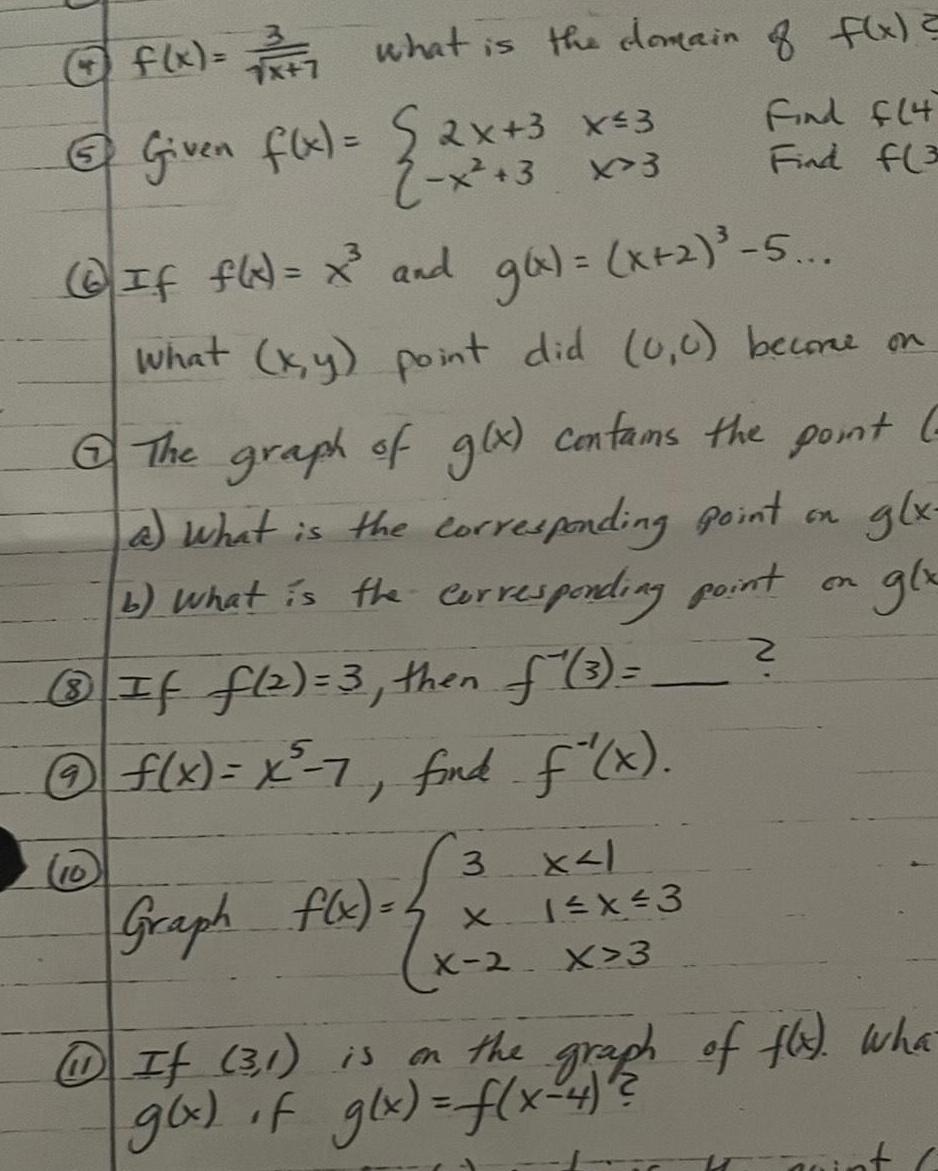 ④ f(x) = 3/√x+7 what is the domain of f(x)?
⑤ Given f(x) = { 2x+3 x≤3 Find f(4)
-x²+3 x>3 Find f(3
⑥ If f(x) = x³ and g(x) = (x+2)³ -5...
What (x,y) point did (0,0) become on
⑦ The graph of g(x) contains the point (
a) What is the corresponding point on g(x
b) What is the corresponding point on g(x
⑧ If f(2)=3, then f⁻¹(3)= ___ ?
⑨ f(x) = x⁵-7, find f⁻¹(x).
⑩ Graph f(x) = { 3 x<1
x 1≤x≤3
x-2 x>3
⑪ If (3,1) is on the graph of f(x). Wha
g(x) if g(x) = f(x-4)?